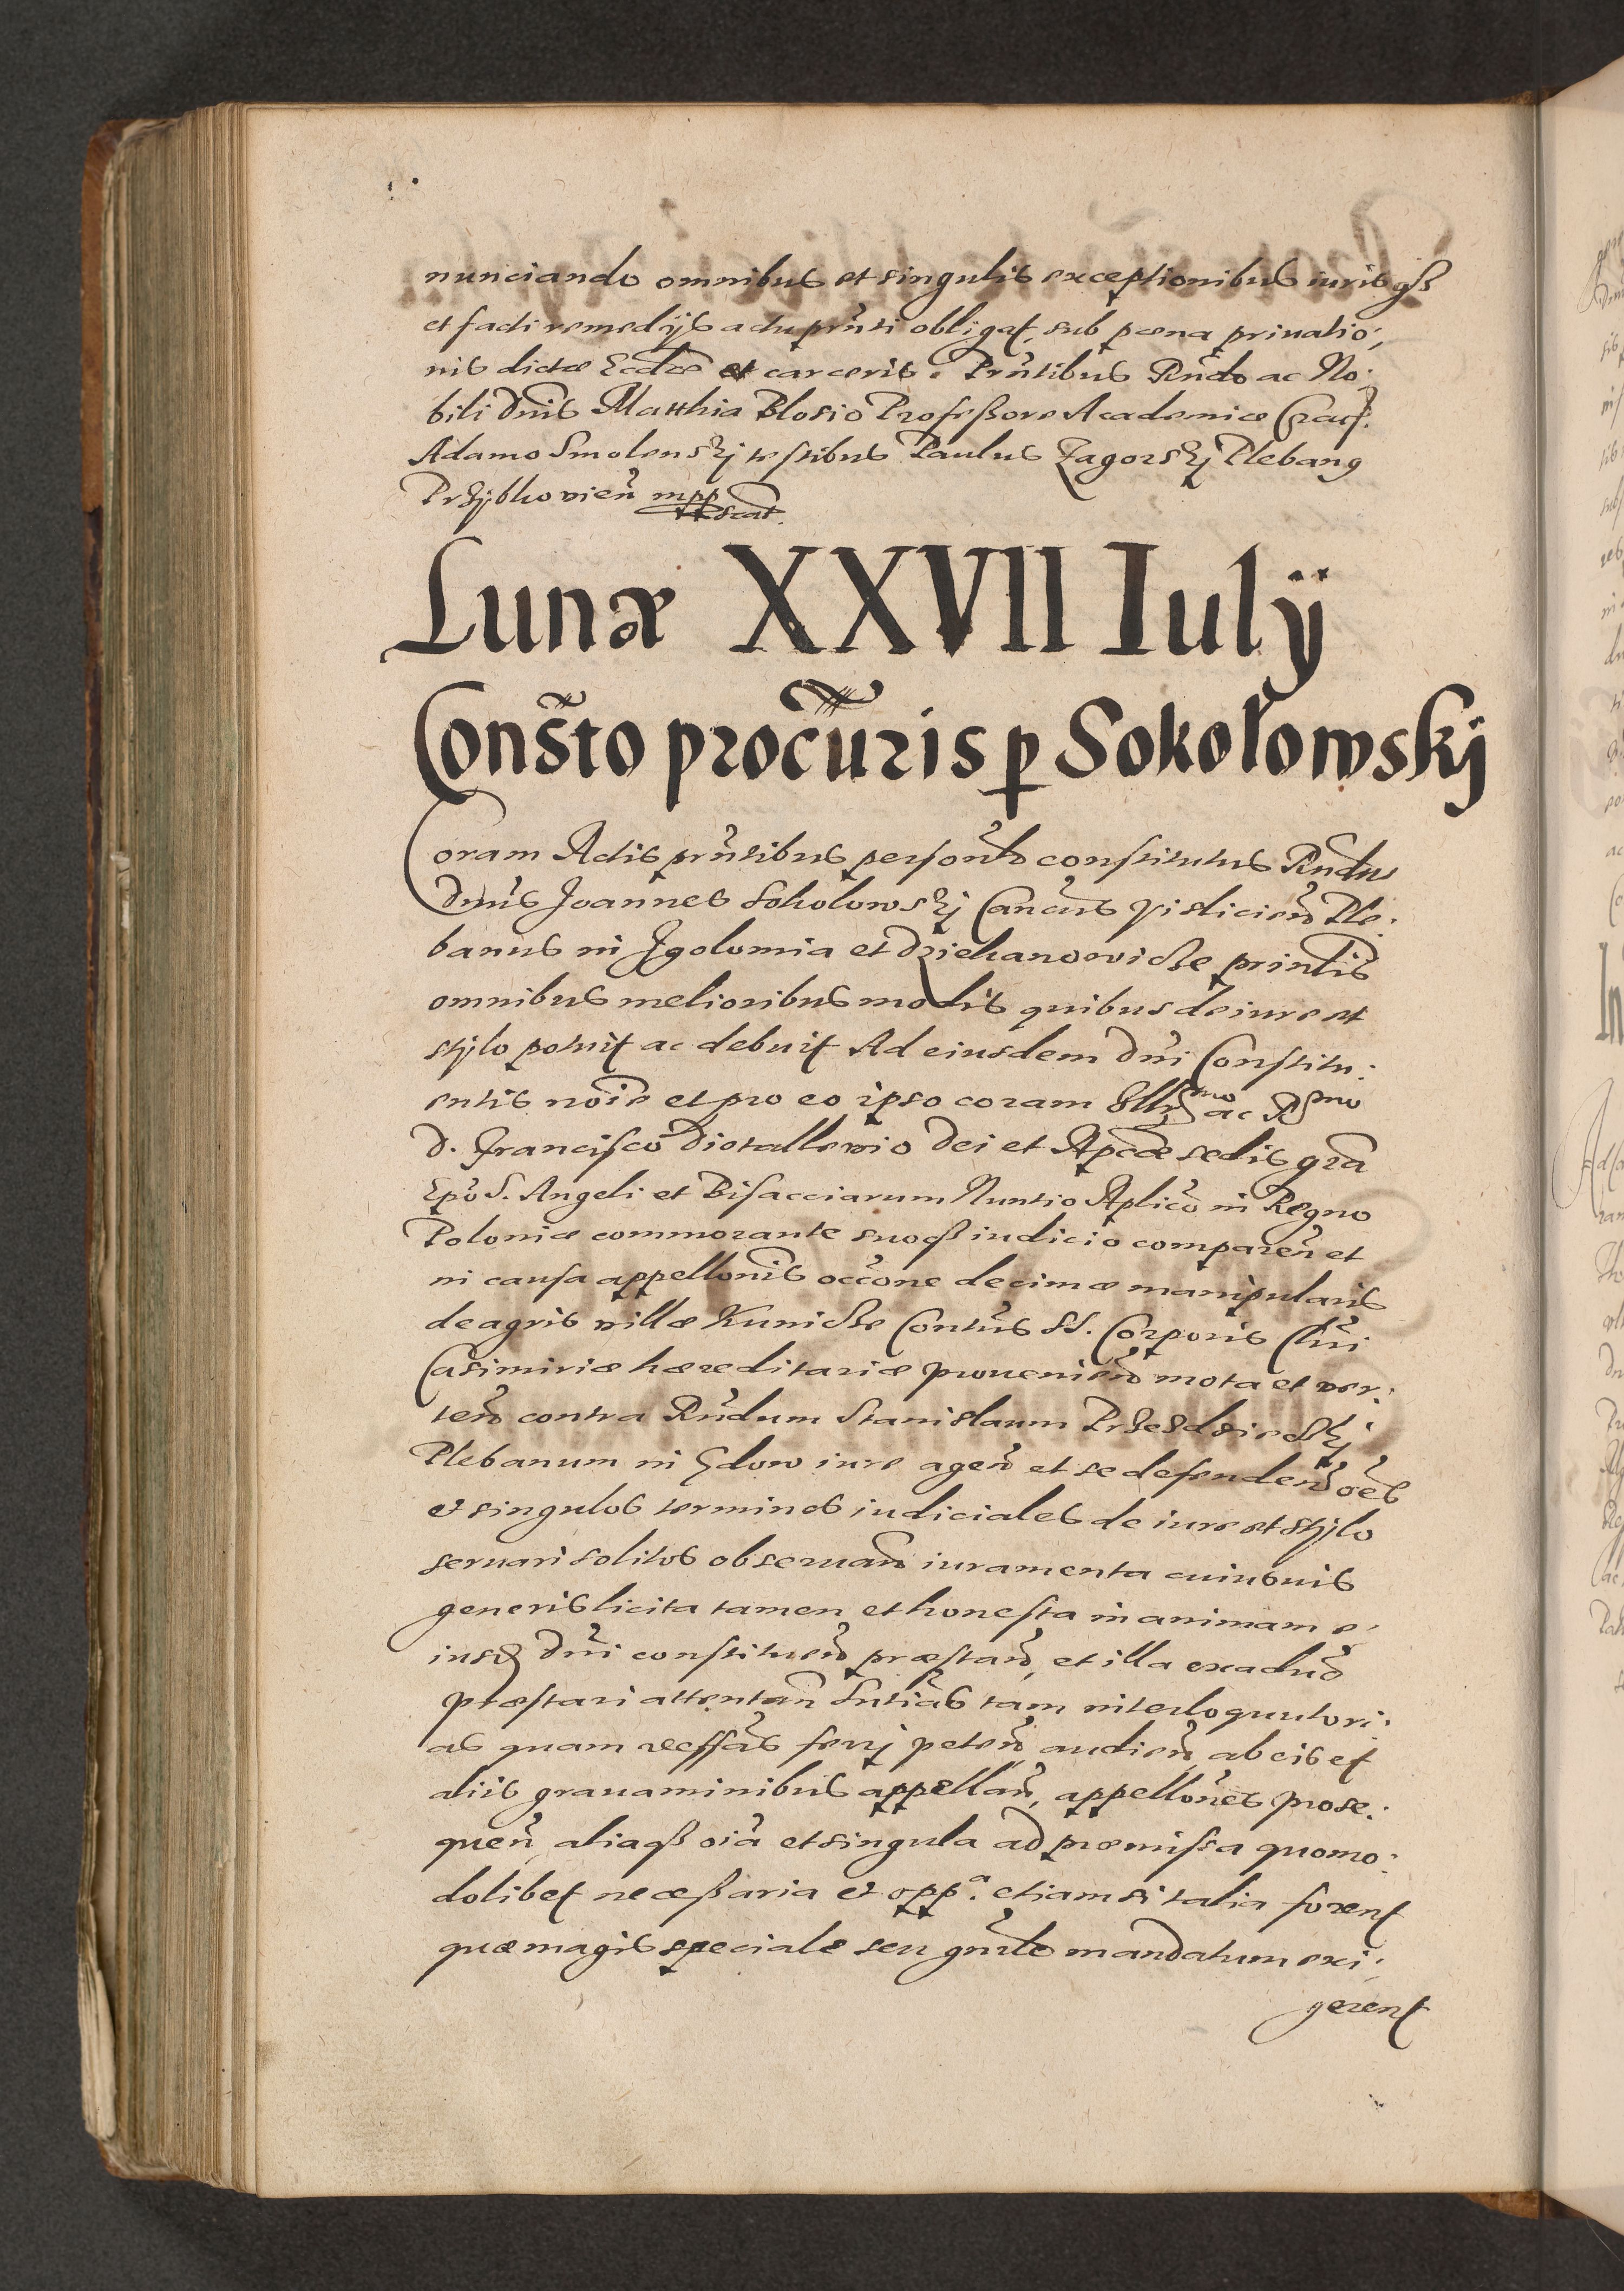 nunciando omnibus et singulis exceptionibus iuris
et facti remedijs actu pñti obligat, sub pœna priuatio,
nis dictæ Eccliæ et carceris. Pñtibus Rndo ac No:
bili Dnis Matthia Blosio Profeßore Academiæ Crac.
Adamo Smolenskj testibus Paulus Zagorskj Plebang
Przÿbkouien mpp scat.
Lunæ XXVII Iulÿ
Consto procuris p Sokołowskÿ
Coram Actis pñtibus personlr constitutus Rndus
Dnus Joannes Sokolowskj Cancus Visliciens Ple:
banus in Igolomia et Dziekanowicze principlis
omnibus melioribus modis quibus de iure et
stÿlo potuit ac debuit Ad eiusdem Dni Constitu:
entis noie et pro eo ipso coram Illrmo ac Rmo
D. Francisco Diotalleuio Dei et Apcæ sedis gra
Epo S. Angeli et Bisacciarum Nuntio Aplico in Regno
Poloniæ commorante suoqß iudicio comparen et
in causa appellonis occone decimæ manipularis
de agris villæ Kunicze Contus SS. Corporis Chri
Casimiriæ hæreditariæ prouenien mota et ver:
ten contra Rndum Stanislaum Przedzieckj
Plebanum in Gdow iure agen et se defenden oes
et singulos terminos iudiciales de iure et stÿlo
seruari solitos obseruan iuramenta cuiusuis
generis licita tamen et honesta in animam e:
iusd Dni constituen præstan, et illa ex aduo
præstari attentan Sntias tam interloquutori:
as quam reffas ferrj peten audien ab eis et
aliis grauaminibus appellan, appellones prose:
quen, aliaqß oia et singula ad præmissa quomo:
dolibet neceßaria et oppa. etiam si talia forent
quæ magis speciale seu gnale mandatum exi:
gerent